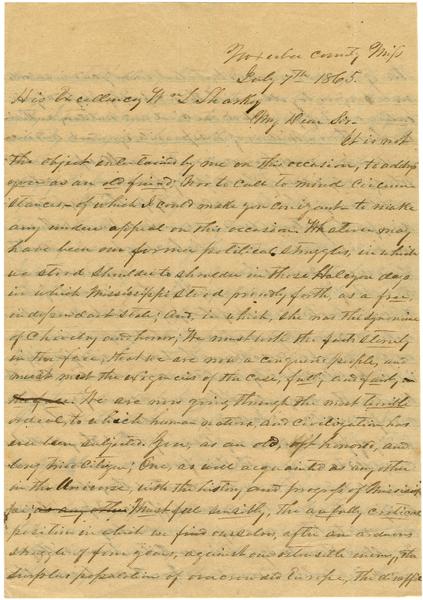 Noxubee County Miss
July 7th 1865.
His Excellency Wm L Sharkey
My Dear Sir-
It is not
the object entertained by me on this occasion, to address
you as an old friend; Nor to call to mind circum
stances- of which I could make you cognizant- to make
any undue appeal on this occasion. Whatever may
have been our former political struggles, in which
we stood shoulder to shoulder in those Halcyon days
in which Mississippi stood proudly forth, as a free,
independent state; And, in which, she was the synonime
of Chivalry and honor; We must look the fact sternly
in the face, that we are now a conquered people, and
must meet the exigencies of the case, fully and fairly,
We are now going through the most terrible
ordeal, to which human nature, and Civilization has
ever been subjected. You, as an old, oft honored, and
long tried Citizen; One, as well acquainted as any other
in the Universe, with the history and progress of Mississip
pi; as any other Must feel sensibly, the awfully critical
position in which we find ourselves, after an arduous
struggle of four years, against our ostensible enemy, the
surplus population of overcrowded Europe, the disaffec